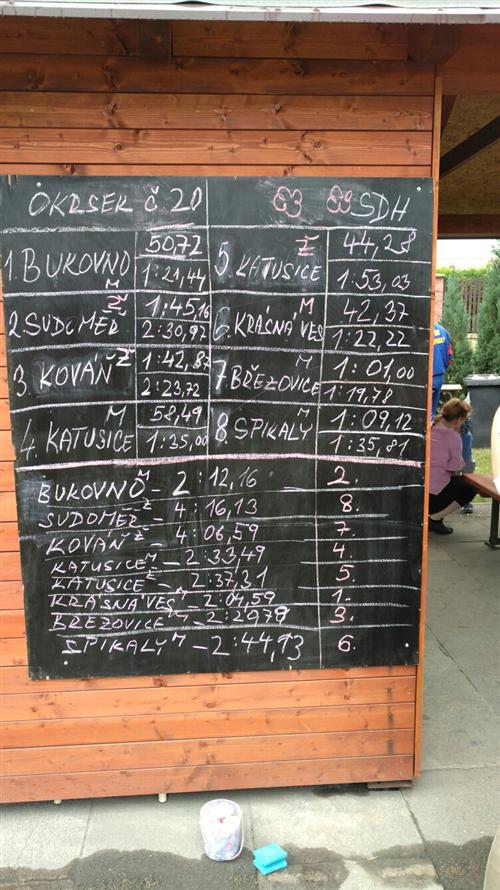 OKRSEK č.20
SDH
1. BUKOVNO M 50,72
1:21,44
2. SUDOMĚŘ Ž 1:45,16
2:30,97
3. KOVÁŇ Ž 1:42,87
2:23,72
4. KATUSICE M 58,49
1:35,00
5. KATUSICE Ž 44,28
1:53,03
6. KRÁSNÁ VES M 42,37
1:22,22
7. BŘEZOVICE M 1:01,00
1:19,78
8. SPIKALY M 1:09,12
1:35,81
BUKOVNO M – 2:12,16 2.
SUDOMĚŘ Ž – 4:16,13 8.
KOVÁŇ Ž – 4:06,59 7.
KATUSICE M – 2:33,49 4.
KATUSICE Ž – 2:37,31 5.
KRÁSNÁ VES M – 2:04,59 1.
BŘEZOVICE M – 2:2979 3.
SPIKALY M – 2:44,93 6.